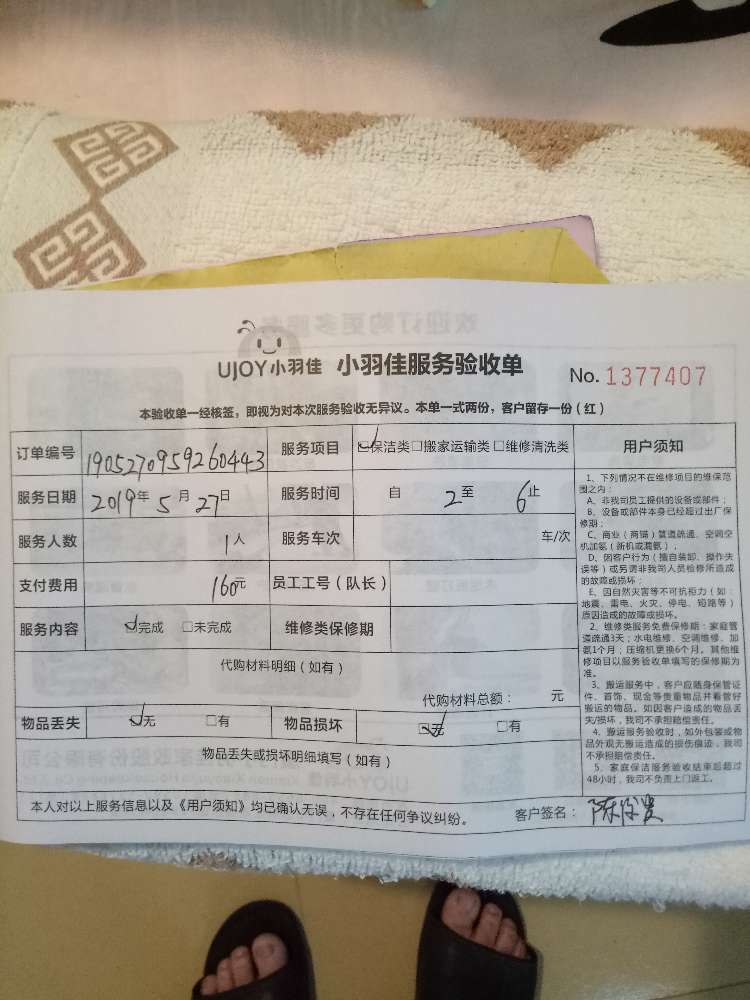 UJOY小羽佳 小羽佳服务验收单 No. 1377407
本验收单一经核签，即视为对本次服务验收无异议。本单一式两份，客户留存一份（红）
订单编号 1905270959260443 服务项目 ☑保洁类□搬家运输类□维修清洗类
服务日期 2019年5月27日 服务时间 自 2至 6止
服务人数 1人 服务车次 车/次
支付费用 160元 员工工号（队长）
服务内容 ☑完成 □未完成 维修类保修期
代购材料明细（如有）
代购材料总额： 元
物品丢失 ☑无 □有 物品损坏 ☑无 □有
物品丢失或损坏明细填写（如有）
本人对以上服务信息以及《用户须知》均已确认无误，不存在任何争议纠纷。 客户签名：
用户须知
1、下列情况不在维修项目的维保范
围之内：
A、非我司员工提供的设备或部件；
B、设备或部件本身已经超过出厂保
修期；
C、商业（商铺）管道疏通、空调空
机加氨（新机或漏氨）；
D、因客户行为（擅自装卸、操作失
误等）或另请非我司人员检修所造成
的故障或损坏；
E、因自然灾害等不可抗拒力（如：
地震、雷电、火灾、停电、短路等）
原因造成的故障或损坏。
2、维修类服务免费保修期：家庭管
道疏通3天；水电维修、空调维修、加
氨1个月；压缩机更换6个月。其他维
修项目以服务验收单填写的保修期为
准。
3、搬运服务中，客户应随身保管证
件、首饰、现金等贵重物品并看管好
搬运的物品。如因客户造成的物品丢
失/损坏，我司不承担赔偿责任。
4、搬运服务验收时，如外包装或物
品外观无搬运造成的损伤痕迹，我司
不承担赔偿责任。
5、家庭保洁服务验收结束起超过
48小时，我司不负责上门返工。